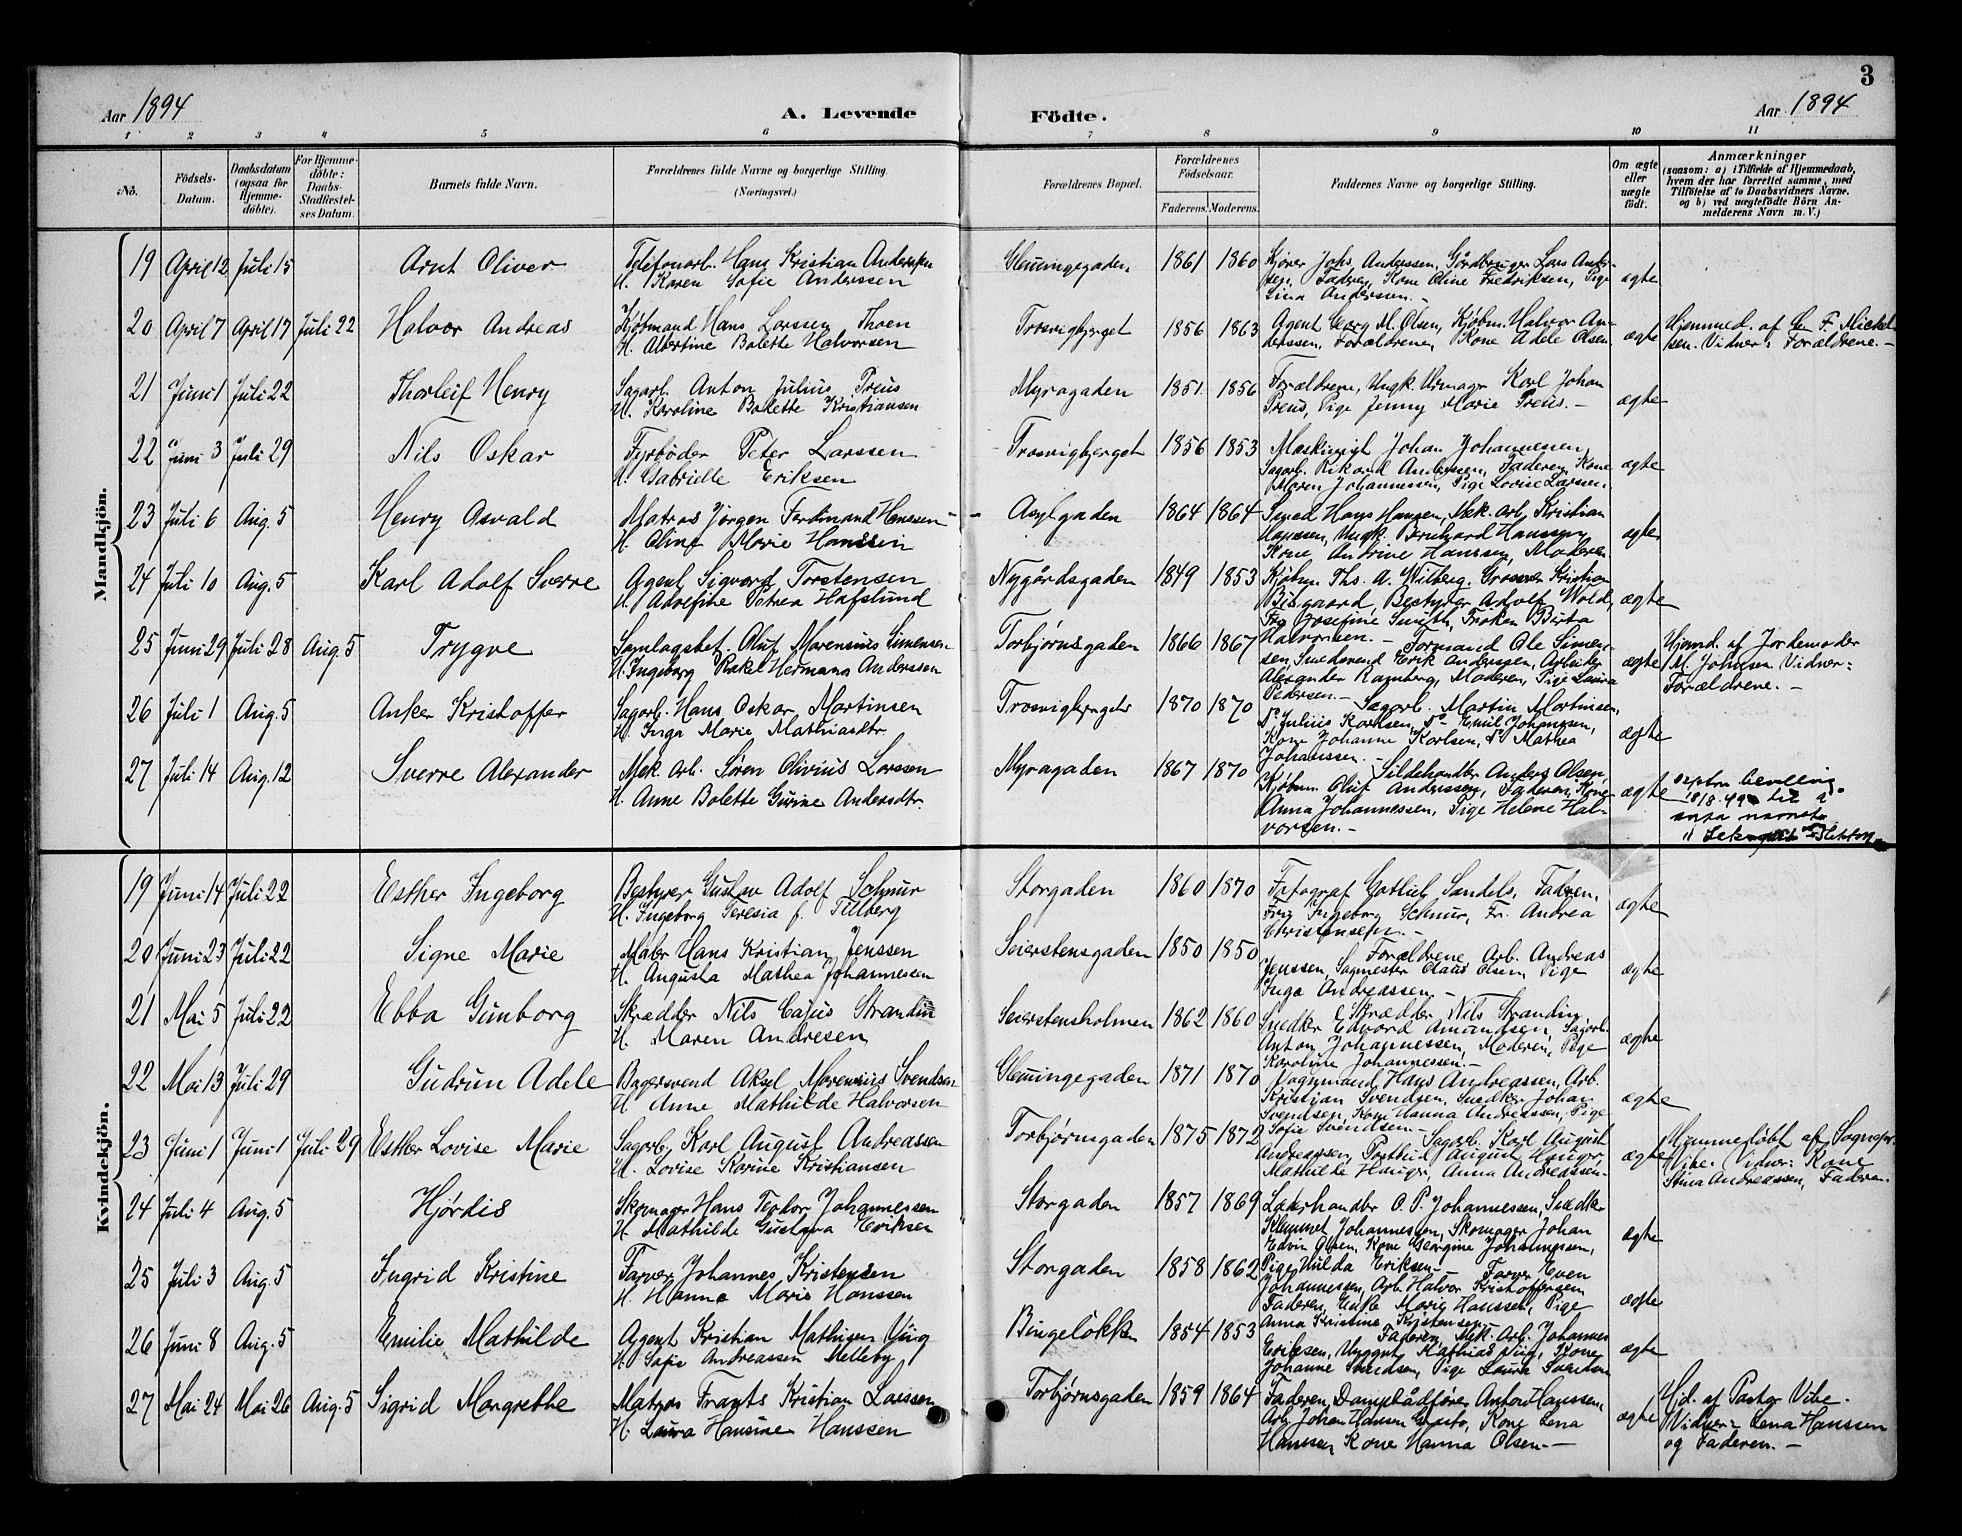 3
Aar 1894
A. Levende
Födte.
Aar 1894
1 2 3 4 5 6 7 8 9 10 11
No.
Födsels-
Datum.
Daabsdatum
(ogsaa for
Hjemme-
döbte).
For Hjemme-
döbte:
Daabs-
Stadfæstel-
ses Datum.
Barnets fulde Navn.
Forældrenes fulde Navne og borgerlige Stilling.
(Næringsvei.)
Forældrenes Bopæl.
Forældrenes
Födselsaar.
Faderens. Moderens.
Faddernes Navne og borgerlige Stilling.
Om ægte
eller
uægte
født.
Anmærkninger
(saasom: a) i Tilfælde af Hjemmedaab,
hvem der har forrettet samme, med
Tilföielse af to Daabsvidners Navne.
og b) ved uægtefödte Börn An-
melderens Navn m. V.)
Mandkjön.
19 April 12 Juli 15 Arnt Oliver
Telefonarb. Hans Kristian Anderssen
H. Karen Sofie Anderssen
Glemmingegaden 1861 1860
Kjører Johs. Anderssen, Gårdbruger Lars Ander-
sen, Faderen, Kone Oline Fredriksen, Pige
Lina Anderssen.-
ægte
20 April 7 April 17 Juli 22 Halvor Andreas
Kjøbmand Hans Larssen Thoen
H. Albertine Bolette Halvorsen
Trosvigbjerget 1856 1863
Agent Georg M. Olsen, Kjøbm. Halvor An-
derssen, Forældrene, Kone Adele Olsen
ægte
Hjemmed. af C F. Mickel-
sen. Vidner: Forældrene.-
21 Juni 1 Juli 22 Thorleif Henry
Sagarb. Anton Julius Preus
H. Karoline Bolette Kristiansen
Myragaden 1851 1856
Forældrene, Ungk. Urmager Karl Johan
Preus, Pige Jenny Marie Preus.-
ægte
22 Juni 3 Juli 29 Nils Oskar
Fyrbøder Peter Larssen
H. Gabrielle Eriksen
Trosvigbjerget 1856 1853
Maskinvigt Johan Johannessen,
Sagarb. Rikard Anderssen, Faderen, Kone
Maren Johannessen, Pige Lovise Larsen.
ægte
23 Juli 6 Aug. 5 Henry Osvald
Matros Jørgen Ferdinand Hanssen
H. Oline Marie Hanssen
Asylgaden 1864 1864
Smed Hans Hansen, Mek. Arb. Kristian
Hanssen, Ungk. Bernhard Hanssen,
Kone Andrine Hanssen, Moderen
ægte
24 Juli 10 Aug. 5 Karl Adolf Sverre
Agent Sigvard Torstensen
H. Adolfine Petrea Hafslund
Nygårdsgaden 1849 1853
Kjøbm. Ths. A. Wilberg, Grosserer Kristian
Bisgaard, Bestyrer Adolf Wold,
Fru Josefine Smith, Frøken Berta
Halvorsen.-
ægte
25 Juni 29 Juli 28 Aug. 5 Trygve
Samlagsbet. Oluf Marensius Simensen
H. Ingeborg Rakel Hermana Anderssen
Torbjørnsgaden 1866 1867
Formand Ole Simen-
sen, Smedsvend Erik Anderssen, Arbeider
Alexander Ramberg, Moderen, Pige Laura
Pedersen.-
ægte
Hjemd. af Jordemoder
M. Johnsen. Vidner:
Forældrene.-
26 Juli 1 Aug. 5 Anker Kristoffer
Sagarb. Hans Oskar Martinsen
H. Inga Marie Mathiasdtr.
Trosvigbjerget 1870 1870
Sagarb. Martin Martinsen,
do Julius Karlsen, do Emil Johanssen,
Kone Johanne Karlsen, do Mathea
Johanssen.-
ægte
27 Juli 14 Aug. 12 Sverre Alexander
Mek. Arb. Søren Olivius Larssen
H. Anne Bolette Gurine Andersdtr.
Myragaden 1867 1870
Sildehandler Anders Olsen,
Kjøbm. Oluf Anderssen, Faderen, Kone
Anna Johannessen, Pige Helene Hal-
vorsen.-
ægte
bevilling
til å
navnet
Kvindekjön.
19 Juni 14 Juli 22 Esther Ingeborg
Bestyrer Gustav Adolf Schnur
H. Ingeborg Teresia f. Tillberg
Storgaden 1860 1870
Fotograf Gotlieb Sandels, Faderen,
Fru Ingeborg Schnur, Fr. Andrea
Christensen.-
ægte
20 Juni 23 Juli 22 Signe Marie
Maler Hans Kristian Jenssen
H. Augusta Mathea Johannesen
Seierstensgaden 1850 1850
Forældrene, Arb. Andreas
Jenssen, Sagmester Olaus Olsen, Pige
Inga Andreassen.-
ægte
21 Mai 5 Juli 22 Ebba Gunborg
Skrædder Nils Cajus Strandin
H. Maren Andresen
Seierstensholmen 1862 1860
Skrædder Nils Strandin,
Snedker Edvard Amundsen, Sagarb.
Anton Johannessen, Moderen, Pige
Karoline Johannessen.-
ægte
22 Mai 13 Juli 29 Gudrun Adele
Bagersvend Aksel Marensius Svendsen
H. Anne Mathilde Halvorsen
Glemmingegaden 1871 1870
Vognmand Hans Andreassen, Arb.
Kristian Svendsen, Snedker Johan
Svendsen, Kone Hanna Andreassen, Pige
Sofie Svendsen.-
ægte
23 Juni 1 Juni 1 Juli 29 Esther Lovise Marie
Sagarb. Karl August Andreassen
H. Lovise Karine Kristiansen
Torbjørnsgaden 1875 1872
Sagarb. Karl August
Andreassen, Postbud August Hauger,
Mathilde Hauger, Anna Andreassen.
ægte
Hjemmedøbt af Sognepr.
Vibe. Vidner: Kone
Stina Andreassen, Faderen.
24 Juli 4 Aug. 5 Hjørdis
Skomager Hans Teodor Johannessen
H. Mathilde Gustava Eriksen
Storgaden 1857 1869
Læderhandler O. P. Johannessen, Snedker
Klemmet Johannessen, Skomager Johan
Edvin Olsen, Kone Georgine Johannessen,
Pige Hulda Eriksen.-
ægte
25 Juli 3 Aug. 5 Ingrid Kristine
Farver Johannes Kristensen
H. Hanna Marie Hanssen
Storgaden 1858 1862
Farver Even
Johannessen, Arb. Halvor Kristoffersen
Faderen, Enke Marie Hanssen, Pige
Anna Kristine Kristensen.
ægte
26 Juni 8 Aug. 5 Emilie Mathilde
Agent Kristian Mathisen Viig
H. Sofie Andreassen Melleby
Bingeløkken 1854 1853
Faderen, Mek. Arb. Johannes
Eriksen, Unggut Mathias Viig, Kone
Johanne Svendsen, Pige Laura Svendsen
ægte
27 Mai 24 Mai 26 Aug. 5 Sigrid Margrethe
Matros Frants Kristian Larssen
H. Laura Hansine Hanssen
Torbjørnsgaden 1859 1864
Faderen, Dampbådfører Anton Hanssen,
Arb. Johan Hansen, Kone Lena
Hanssen, Kone Hanna Olsen.-
ægte
Hjd. af Pastor Vibe.
Vidner: Lena Hanssen
og Faderen.-